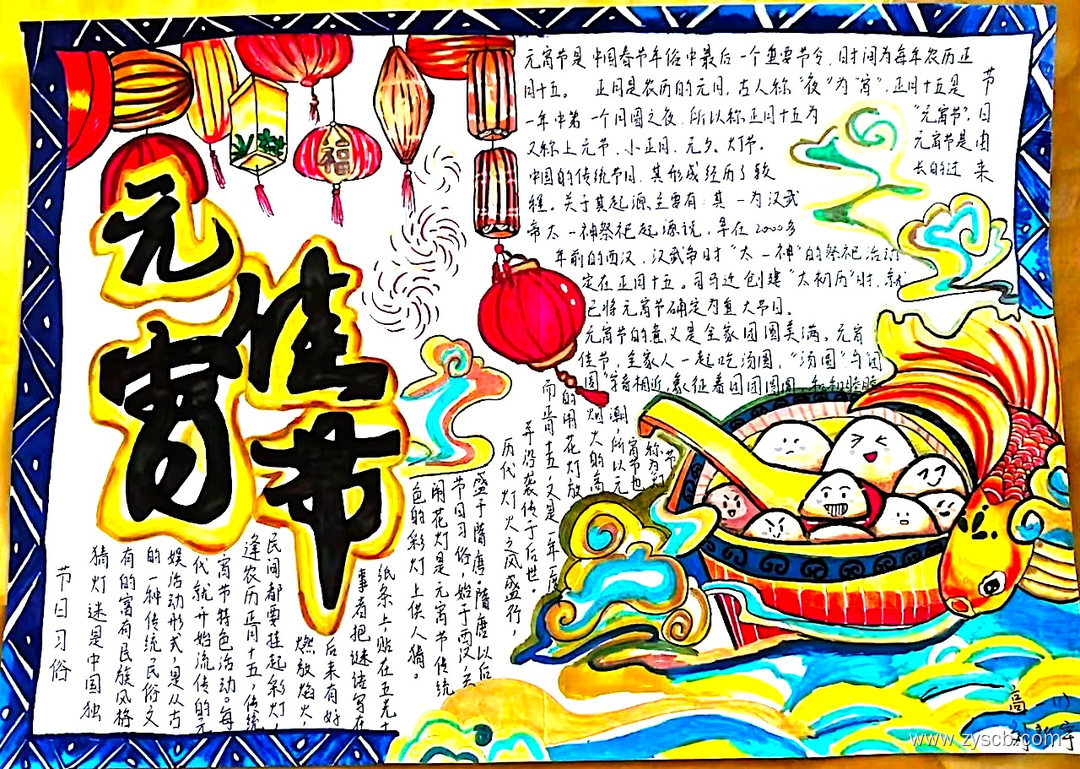 元宵
佳节
福
节日由来
元宵节是中国春节年俗中最后一个重要节令,时间为每年农历正
月十五。正月是农历的元月,古人称"夜"为"宵",正月十五是
一年中第一个月圆之夜,所以称正月十五为"元宵节"。
又称上元节、小正月、元夕、灯节。元宵节是
中国的传统节日,其形成经历了较长的过
程。关于其起源主要有:其一为汉武
帝太一神祭祀起源说,早在2000多
年前的西汉,汉武帝时"太一神"的祭祀活动
定在正月十五。司马迁创建"太初历"时,就
已将元宵节确定为重大节日。
元宵节的意义是全家团圆美满。元宵
佳节,全家人一起吃汤圆,"汤圆"与"团
圆"字音相近,象征着团团圆圆,和和睦睦
节日习俗
猜灯谜是中国独
有的富有民族风格
的一种传统民俗文
娱活动形式,是从古
代就开始流传的元
宵节特色活动。每
逢农历正月十五,传统
民间都要挂起彩灯,
燃放焰火,
后来有好
事者把谜语写在
纸条上,贴在五光十
色的彩灯上供人猜。
闹花灯是元宵节传统
节日习俗,始于西汉,兴
盛于隋唐。隋唐以后
历代灯火之风盛行,
并沿袭传于后世。
而正月十五,又是一年一度
的闹花灯放
烟火大的高
潮,所以元
宵节也
称为
www.zyscb.com